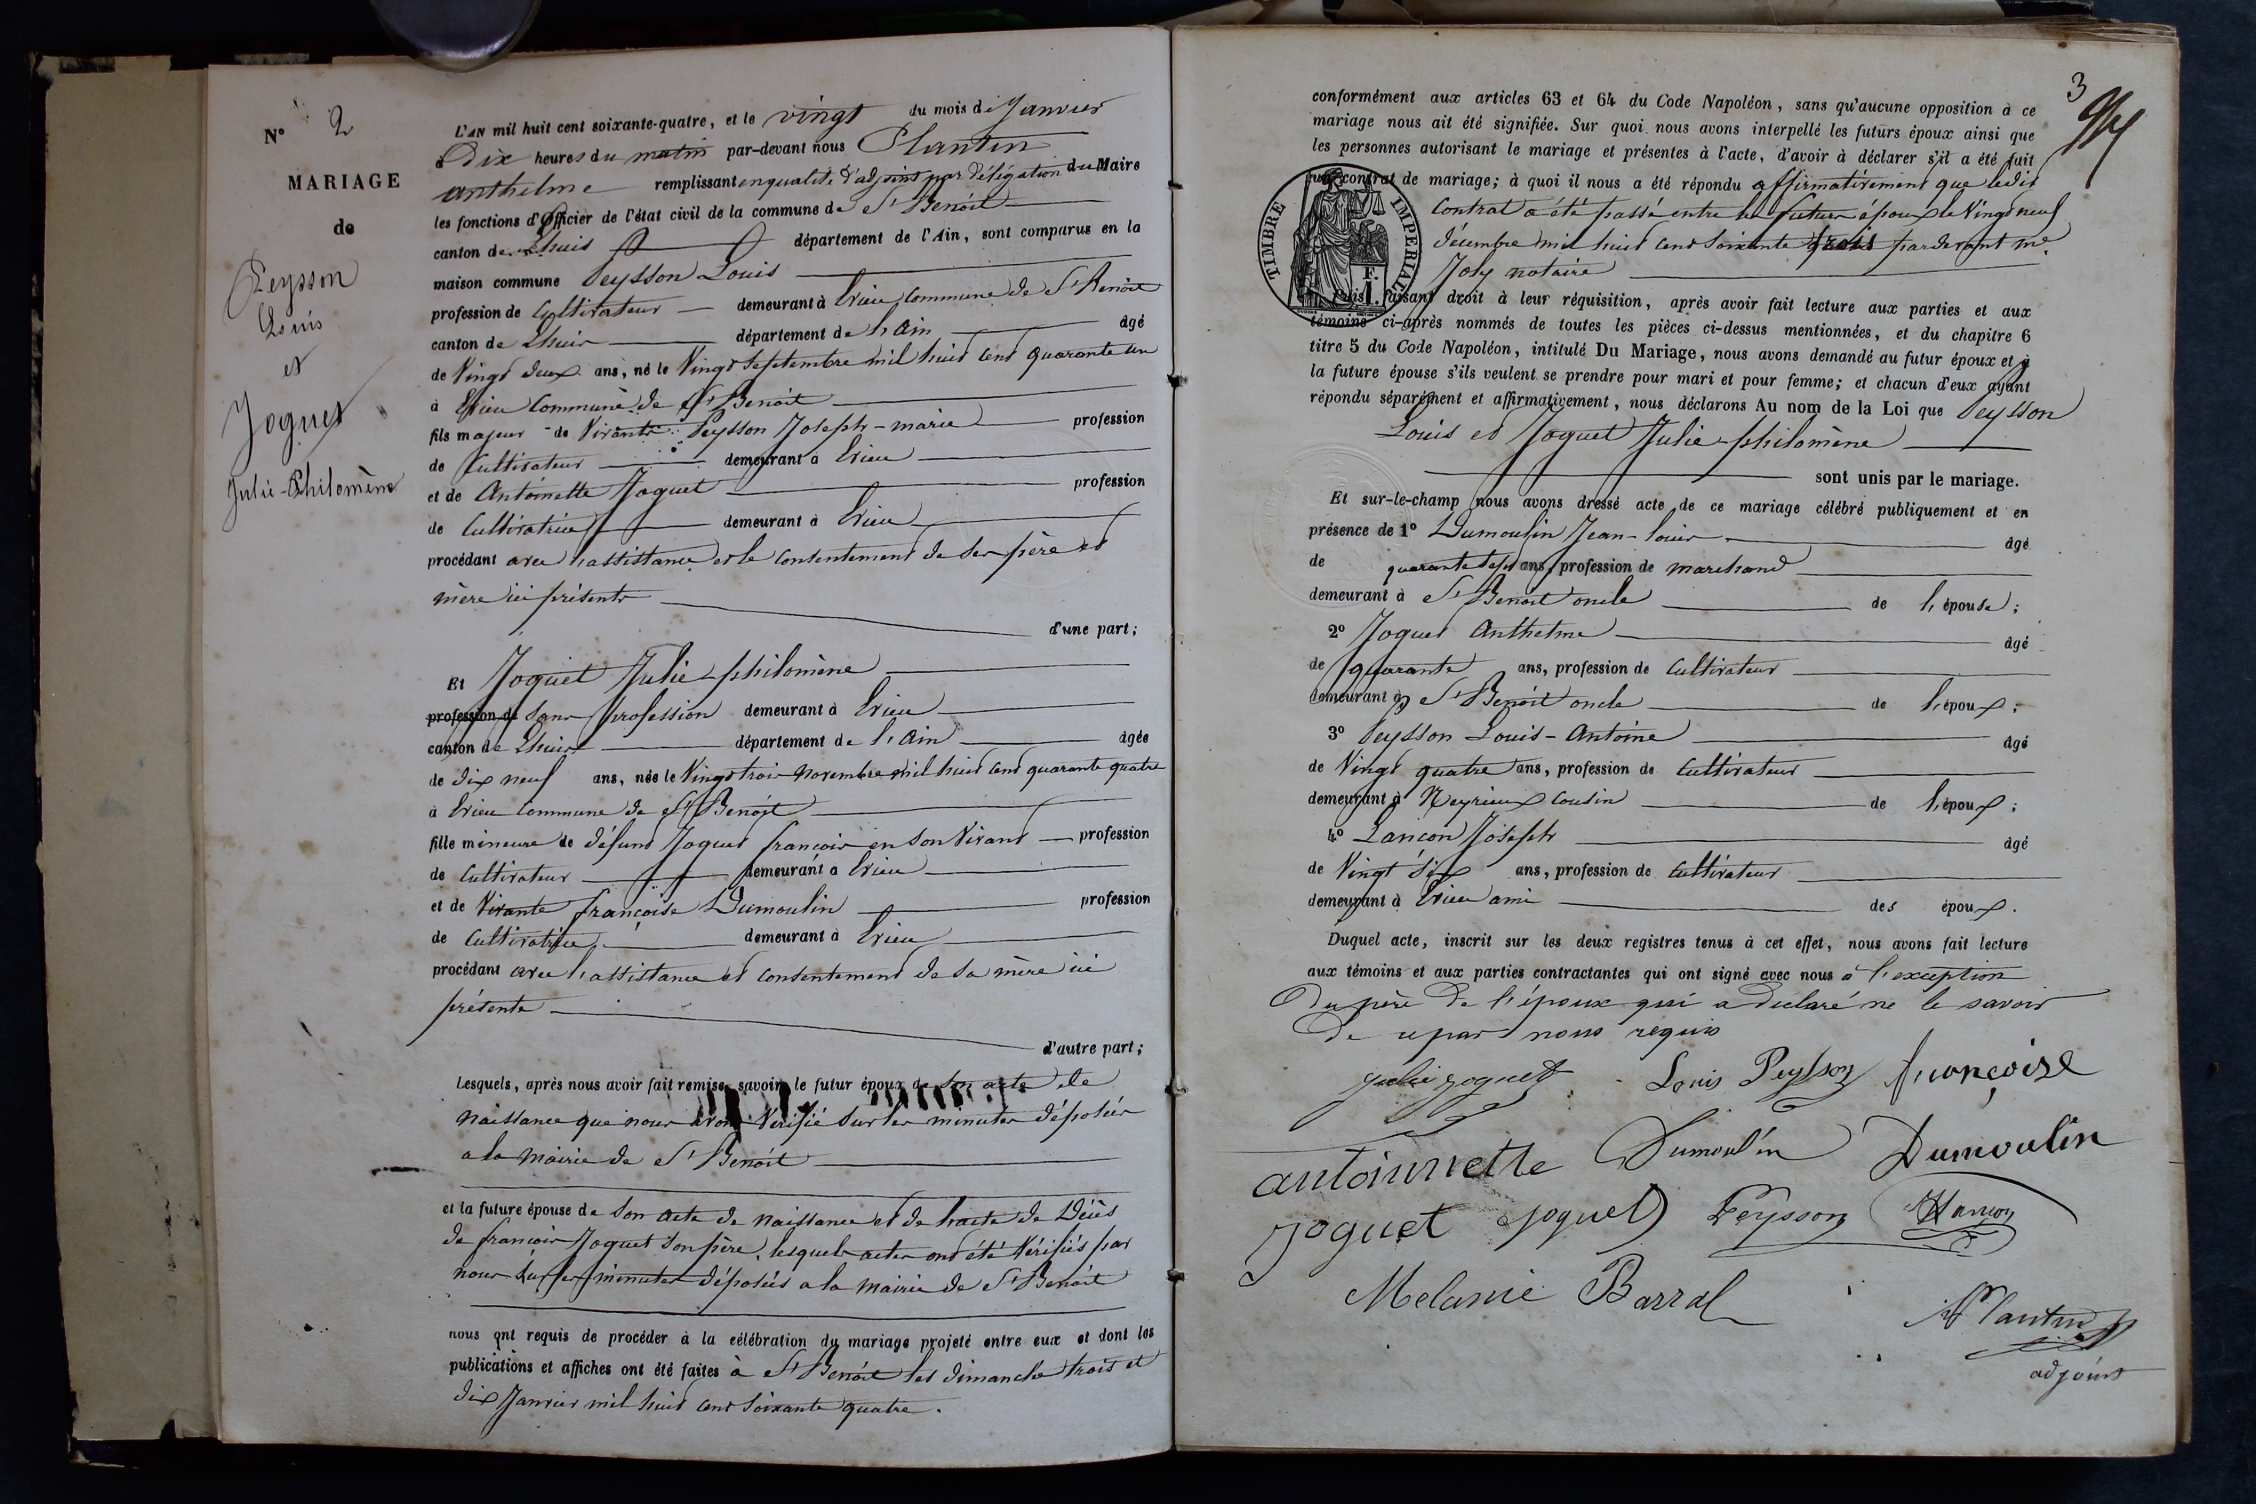 N° 2
MARIAGE
de
Peysson
Louis
et
Joguet
Julie-Philomène
L'AN mil huit cent soixante-quatre, et le vingt du mois de Janvier
à Dix heures du matin par-devant nous Plantin
anthelme remplissant en qualité d'adjoint par délégation du Maire
les fonctions d'Officier de l'état civil de la commune de St Benoit
canton de Lhuis département de l'Ain, sont comparus en la
maison commune Peysson Louis
profession de Cultivateur demeurant à Evieu Commune de St Benoit
canton de Lhuis département de l'ain âgé
de Vingt deux ans, né le Vingt Septembre mil huit cent quarante un
à Evieu Commune de St Benoit
fils majeur de Vivants Peysson Joseph-marie profession
de Cultivateur demeurant à Evieu
et de Antoinette Joguet profession
de Cultivatrice demeurant à Evieu
procédant avec l'assistance et le consentement de ses père et
mère ici présents
d'une part;
Et Joguet Julie-philomène
profession de Sans profession demeurant à Evieu
canton de Lhuis département de l'ain âgée
de dix neuf ans, née le Vingt trois novembre mil huit cent quarante quatre
à Evieu Commune de St Benoit
fille mineure de défunt Joguet françois en son Vivant profession
de Cultivateur demeurant à Evieu
et de Vivante françoise Dumoulin profession
de Cultivatrice demeurant à Evieu
procédant avec l'assistance et consentement de sa mère ici
présente
d'autre part;
Lesquels, après nous avoir fait remise, savoir, le futur époux de son acte de
naissance que nous avons Vérifié sur les minutes déposées
a la mairie de St Benoit
et la future épouse de Son acte de naissance et de l'acte de Décès
de françois Joguet son père, lesquels actes ont été Vérifiés par
nous sur les minutes déposées a la mairie de St Benoit
nous ont requis de procéder à la célébration du mariage projeté entre eux et dont les
publications et affiches ont été faites à St Benoit les dimanche trois et
dix Janvier mil huit cent Soixante quatre.
3
conformément aux articles 63 et 64 du Code Napoléon, sans qu'aucune opposition à ce
mariage nous ait été signifiée. Sur quoi nous avons interpellé les futurs époux ainsi que
les personnes autorisant le mariage et présentes à l'acte, d'avoir à déclarer s'il a été fait
un contrat de mariage; à quoi il nous a été répondu affirmativement que ledit
Contrat a été passé entre les futurs époux le Vingt neuf
décembre mil huit cent Soixante trois pardevant me
Joly notaire
TIMBRE IMPERIAL
1 F.
Puis, faisant droit à leur réquisition, après avoir fait lecture aux parties et aux
témoins ci-après nommés de toutes les pièces ci-dessus mentionnées, et du chapitre 6
titre 5 du Code Napoléon, intitulé Du Mariage, nous avons demandé au futur époux et à
la future épouse s'ils veulent se prendre pour mari et pour femme; et chacun d'eux ayant
répondu séparément et affirmativement, nous déclarons Au nom de la Loi que Peysson
Louis et Joguet Julie-philomène
sont unis par le mariage.
Et sur-le-champ nous avons dressé acte de ce mariage célébré publiquement et en
présence de 1° Dumoulin Jean-louis âgé
de quarante sept ans, profession de marchand
demeurant à St Benoit oncle de l'épouse;
2° Joguet Anthelme âgé
de quarante ans, profession de Cultivateur
demeurant à St Benoit oncle de l'époux;
3° Peysson Louis-Antoine âgé
de Vingt quatre ans, profession de Cultivateur
demeurant à Neyrieux Cousin de l'époux;
4° Lançon Joseph âgé
de Vingt six ans, profession de Cultivateur
demeurant à Evieu ami des époux.
Duquel acte, inscrit sur les deux registres tenus à cet effet, nous avons fait lecture
aux témoins et aux parties contractantes qui ont signé avec nous à l'exception
Du père De l'époux qui a déclaré ne le savoir
De ce par nous requis
julie joguet Louis Peysson françoise
antoinnette Dumoulin Dumoulin
joguet joguet Peysson
Melanie Barral
Plantin
adjoint